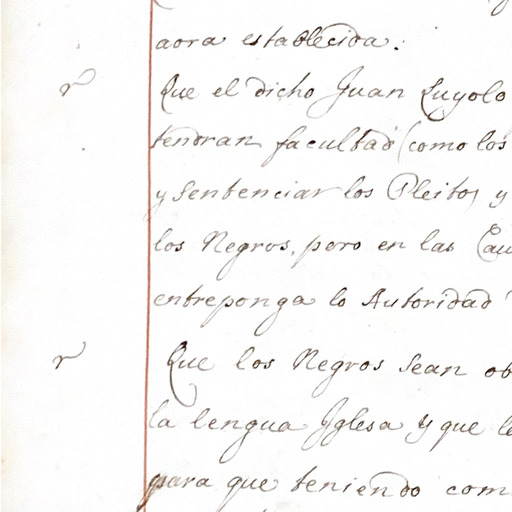 aora establecida.
r Que el dicho Juan Luyolo
tendran facultad (como los
y Sentenciar los Pleitos, y
los Negros, pero en las
entreponga lo Autoridad
r Que los Negros Sean
la lengua Jglesa y que
para que teniendo com